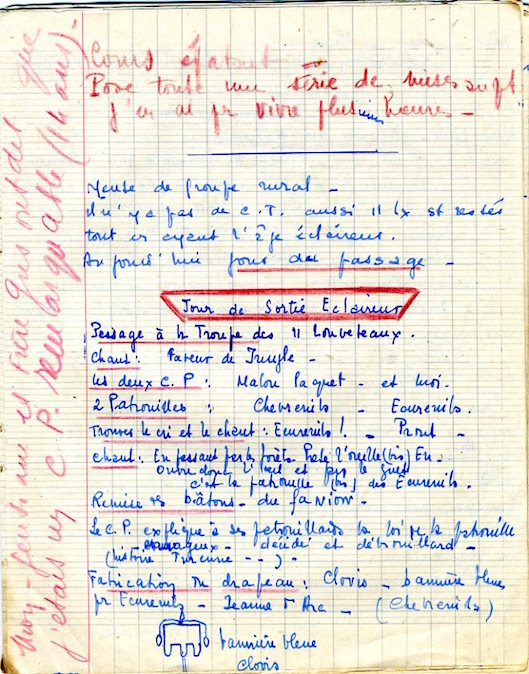 Cours épatant
Pose toute une série de mises au pt
j'en ai pr vivre plusieurs heures -
Meute de Groupe rural -
Il n'y a pas de C.T. aussi 11 lx st restés
tout en ayant l'âge éclaireur.
Aujourd'hui jour du passage -
Jour de Sortie Eclaireur
Passage à la Troupe des 11 Louveteaux.
Chant : Faveur de Jungle -
Les deux C.P : Malou Paquet - et moi.
2 Patrouilles : Chevreuils - Ecureuils.
Trouver le cri et le chant : Ecureuils ! - Prout -
Chant : En passant par la forêt Prête l'oreille (bis) En -
c'est la patrouille (bis) des Écureuils.
Remise des bâtons - du fanion -
Le C.P. explique à ses patrouillards la loi de la patrouille
courageux - décidé et débrouillard -
(histoire Turenne - - ) -
Fabrication du drapeau : Clovis - bannière bleue
pr Ecureuils - Jeanne d'Arc - (Chevreuils)
bannière bleue
Clovis
j'étais un C.P. remarquable (14 ans).